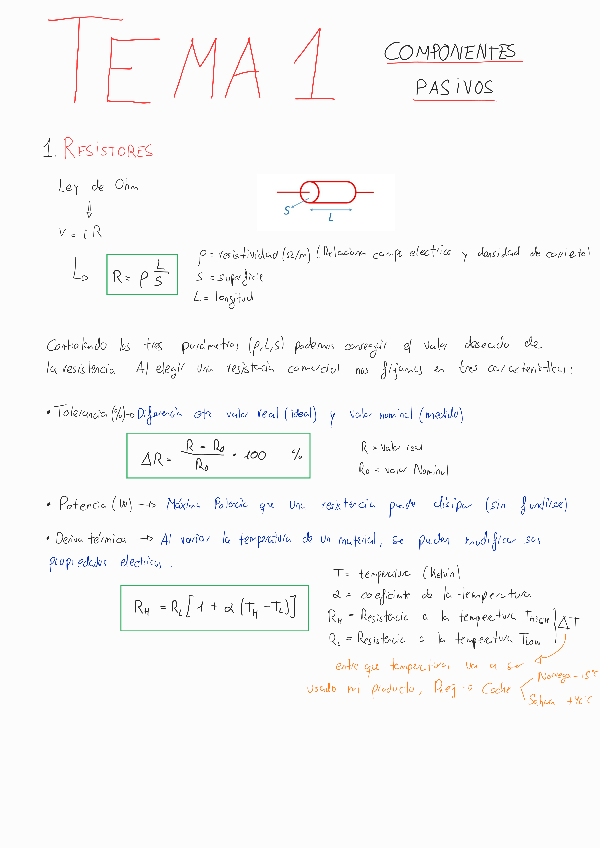 TEMA 1
COMPONENTES
PASIVOS
1. RESISTORES
Ley de Ohm
V = i R
S
L
R = ρ L/S
ρ = resistividad (Ω/m) (Relaciona campo electrico y densidad de corriente)
S = superficie
L = longitud
Controlando los tres parámetros (ρ, L, S) podemos conseguir el valor deseado de
la resistencia. Al elegir una resistencia comercial nos fijamos en tres características:
• Tolerancia (%) → Diferencia entre valor real (ideal) y valor nominal (medido)
ΔR = (R - R₀)/R₀ · 100 %
R = Valor real
R₀ = valor Nominal
• Potencia (W) → Máxima Potencia que una resistencia puede disipar (sin fundirse)
• Deriva térmica → Al variar la temperatura de un material, se pueden modificar sus
propiedades electricas.
R_H = R_L [1 + α (T_H - T_L)]
T = temperatura (Kelvin)
α = coeficiente de la temperatura
R_H = Resistencia a la temperatura T_HIGH
R_L = Resistencia a la temperatura T_LOW
ΔT
entre que temperaturas va a ser
usado mi producto, Coche
Noruega -15°C
+40°C